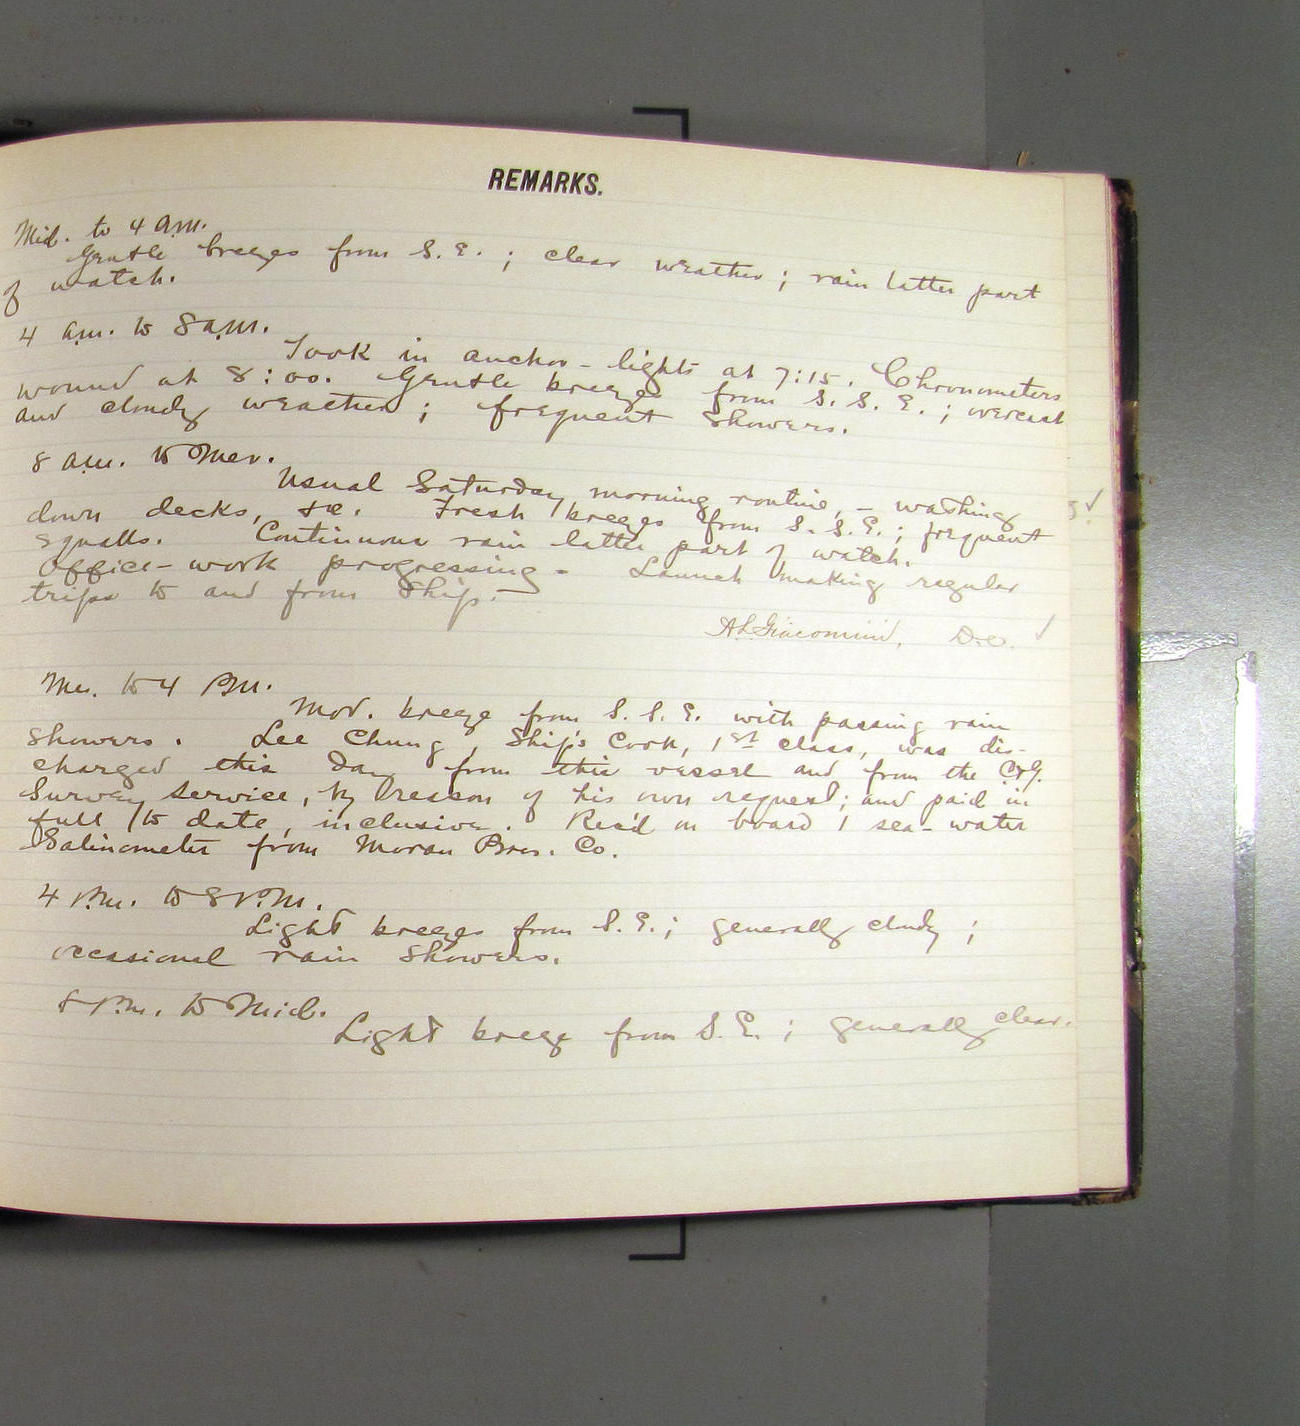 REMARKS.
Mid. to 4 a.m.
Gentle breezes from S.E.; clear weather; rain latter part
of watch.
4 a.m. to 8 a.m.
Took in anchor-lights at 7:15. Chronometers
wound at 8:00. Gentle breeze from S.S.E.; overcast
and cloudy weather; frequent showers.
8 a.m. to Mer.
Usual Saturday morning routine, - washing
down decks, &c. Fresh breezes from S.S.E.; frequent
squalls. Continuous rain latter part of watch.
Office-work progressing - Launch making regular
trips to and from Ship.
A.L. Giacomini, D.O.
Mer. to 4 P.M.
Mod. breeze from S.S.E. with passing rain
showers. Lee Chung, Ship's Cook, 1st class, was dis-
charged this day from this vessel and from the C&G.
Survey Service, by reason of his own request; and paid in
full to date, inclusive. Rec'd on board 1 sea-water
Salinometer from Moran Bros. Co.
4 P.M. to 8 P.M.
Light breezes from S.E.; generally cloudy;
occasional rain showers.
8 P.M. to Mid.
Light breeze from S.E.; generally clear.